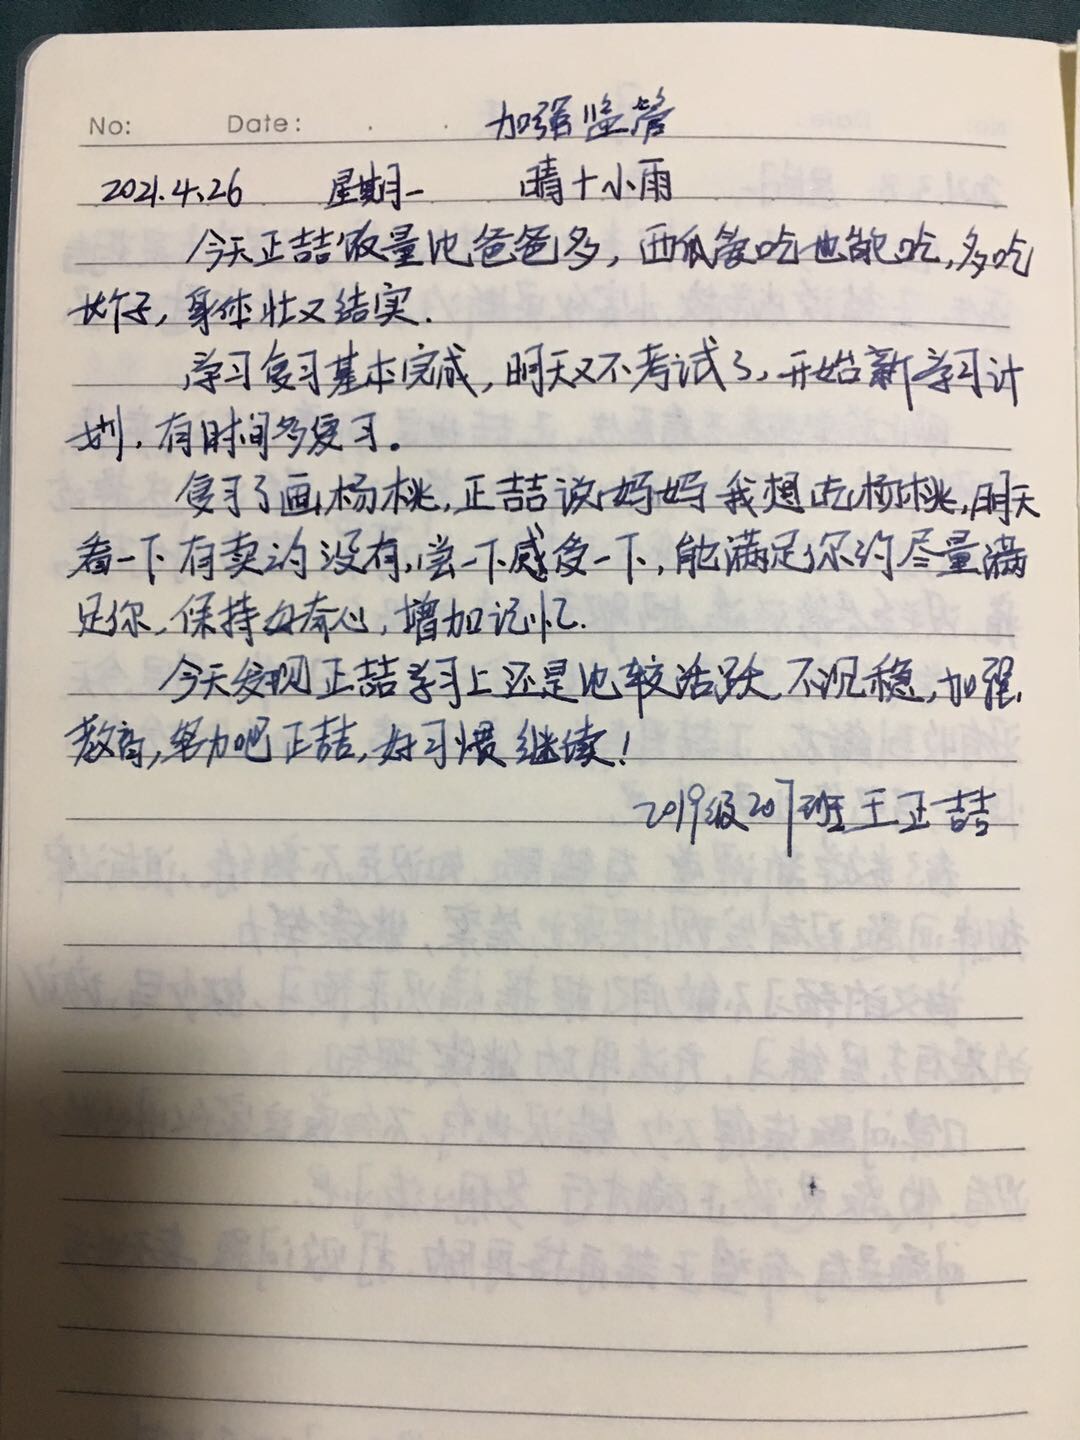 No: Date: 加强监管
2021.4.26 星期一 晴+小雨
今天正喆饭量比爸爸多,西瓜管吃也能吃,多吃
长个子,身体壮又结实.
学习复习基本完成,明天又不考试了,开始新学习计
划,有时间多复习。
复习了画杨桃,正喆说妈妈我想吃杨桃,明天
看一下有卖的没有,尝一下感受一下,能满足你的尽量满
足你,保持好奇心,增加记忆.
今天发现正喆学习上还是比较活跃,不沉稳,加强
教育,努力吧正喆,好习惯继续!
2019级207班王正喆